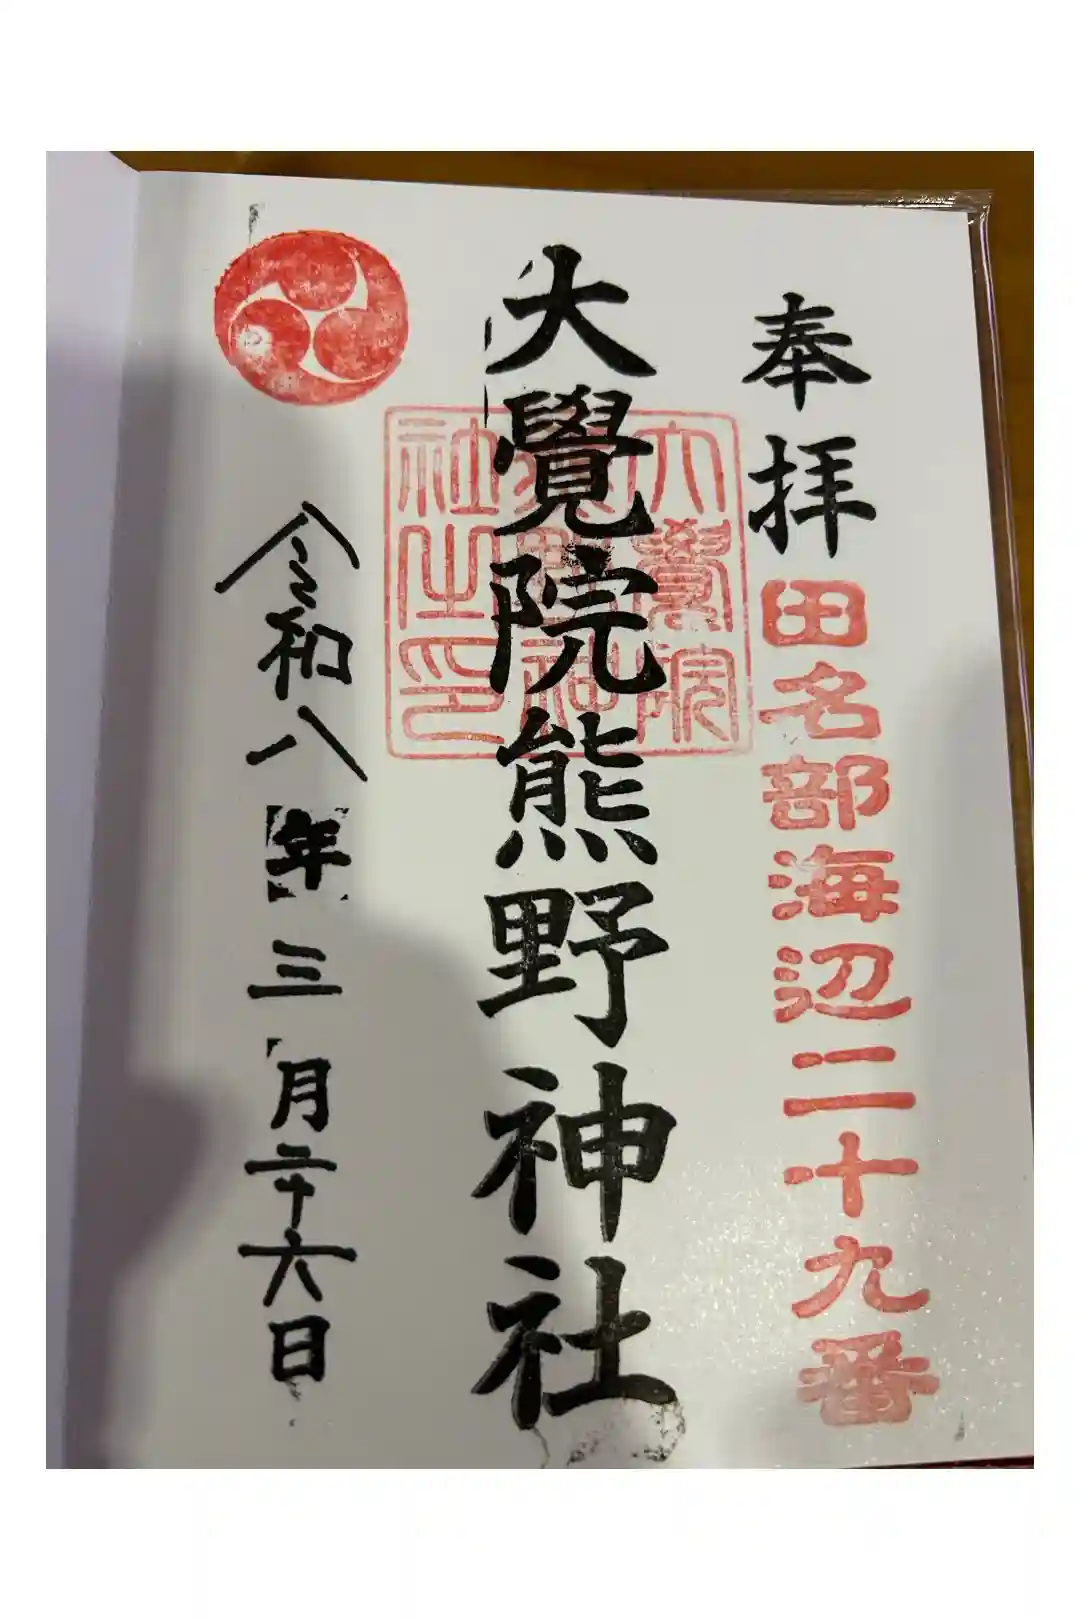 奉拝
田名部海辺二十九番
大覺院熊野神社
大覺院
熊野神
社之印
令和八年三月二十六日